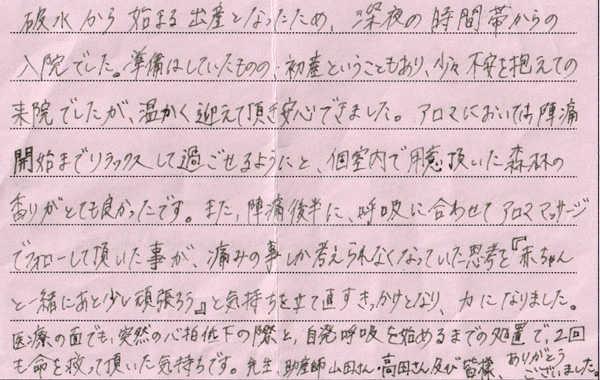 破水から始まる出産となったため、深夜の時間帯からの
入院でした。準備はしていたものの、初産ということもあり、少々不安を抱えての
来院でしたが、温かく迎えて頂き安心できました。アロマにおいては陣痛
開始までリラックスして過ごせるようにと、個室内で用意頂いた森林の
香りがとても良かったです。また、陣痛後半に、呼吸に合わせてアロママッサージ
でフォローして頂いた事が、痛みの事しか考えられなくなっていた思考を『赤ちゃん
と一緒にあと少し頑張ろう』と気持ちを立て直すきっかけとなり、力になりました。
医療の面でも、突然の心拍低下の際と、自発呼吸を始めるまでの処置で、2回
も命を救って頂いた気持ちです。先生、助産師山田さん・高田さん及び皆様、ありがとう
ございいました。